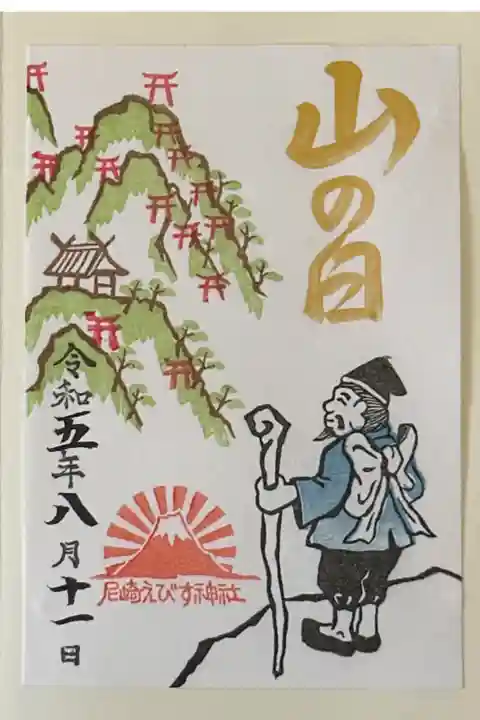 山の日
令和五年八月十一日
尼崎えびす神社